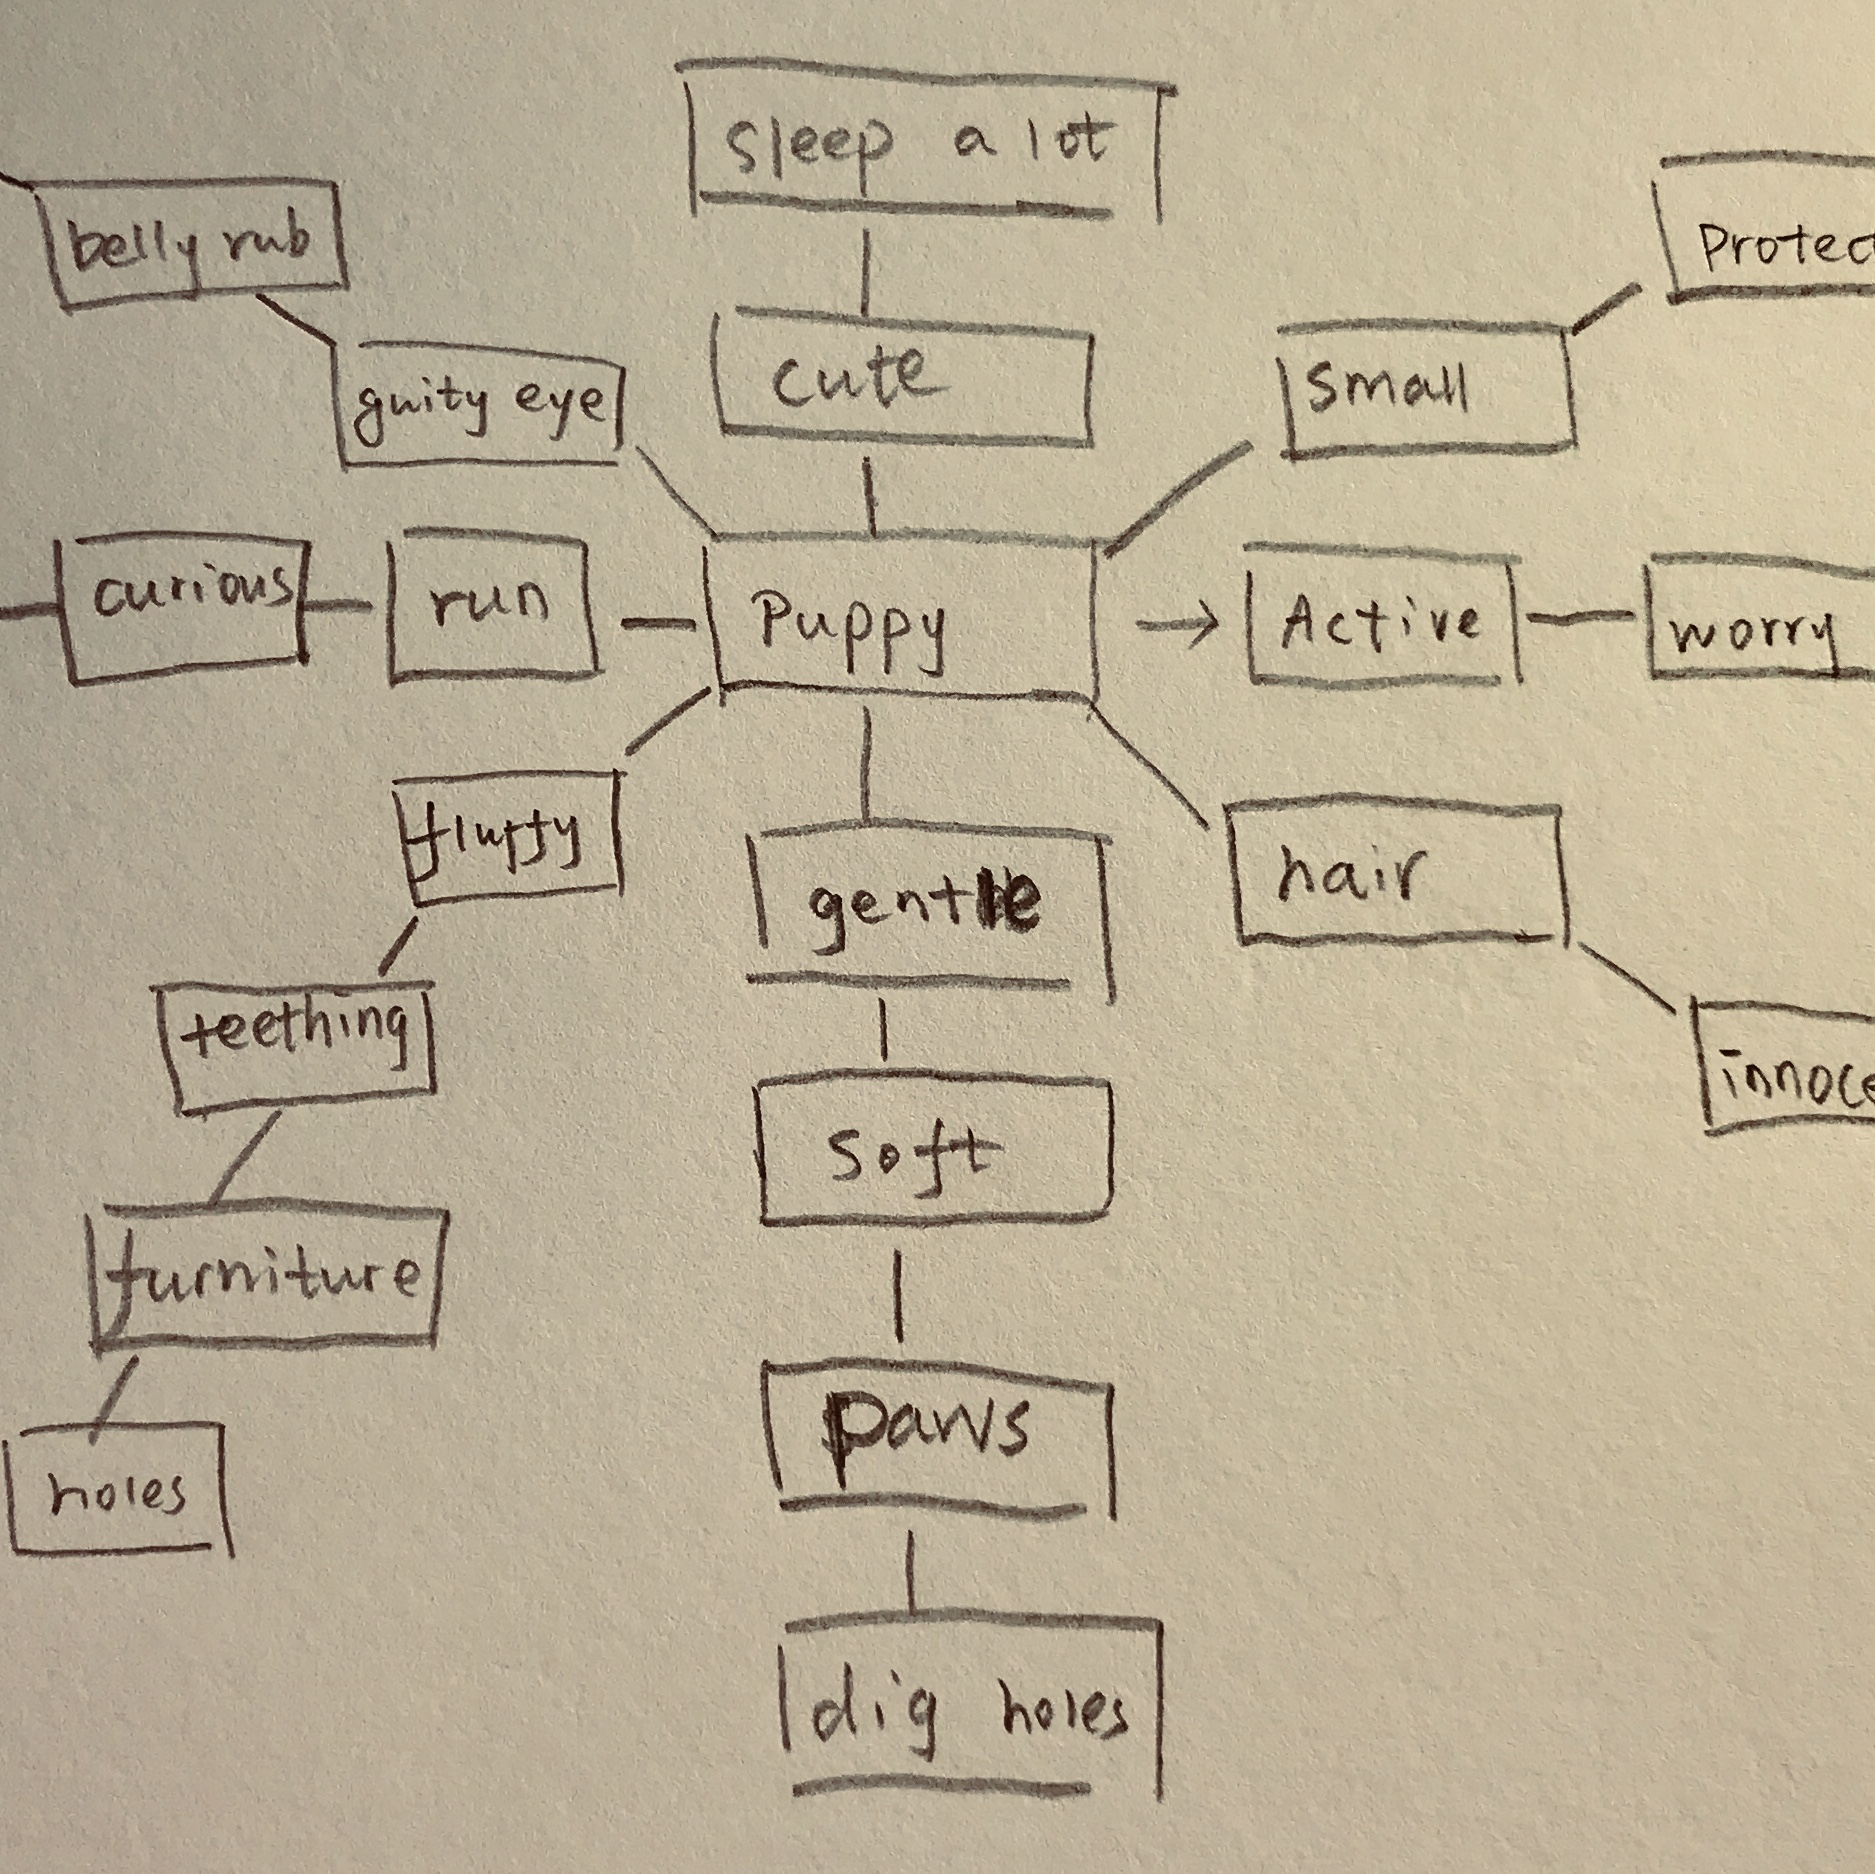 sleep a lot
belly rub
Protec
cute
small
guity eye
curious
run
Puppy
Active
worry
fluffy
gentle
hair
teething
innoce
soft
furniture
paws
holes
dig holes